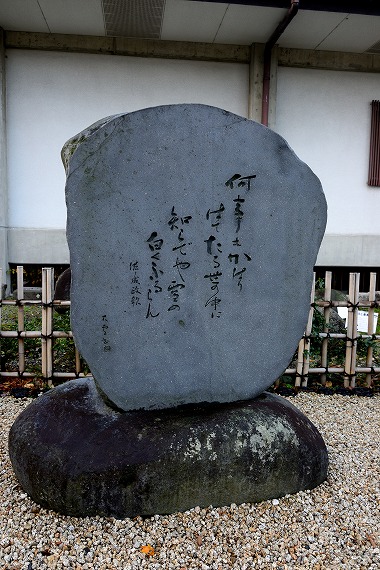 何事もかはり
はてたる世の中に
知らでや雪の
白くふるらん
成政歌